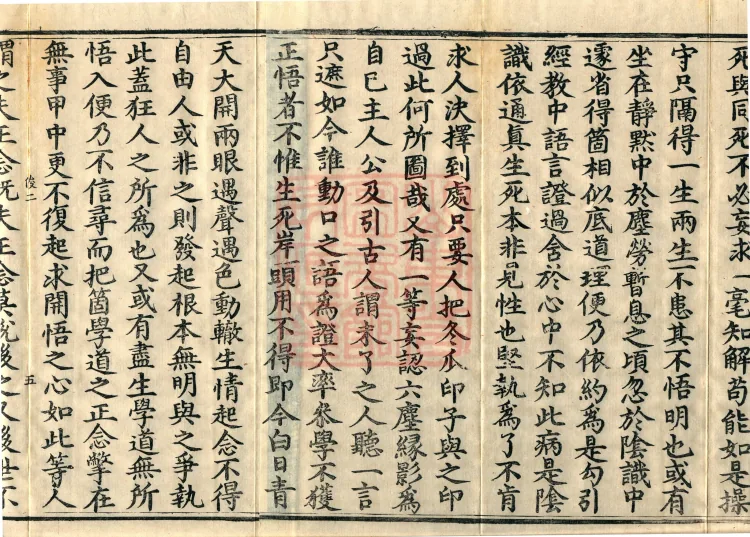 死與同死不必妄求一毫知解苟能如是操
守只隔得一生兩生不患其不悟明也或有
坐在靜默中於塵勞暫息之頃忽於陰識中
遽省得箇相似底道理便乃依約為是勾引
經教中語言證過含於心中不知此病是陰
識依通眞生死本非見性也堅執為了不肯
求人決擇到處只要人把冬瓜印子與之印
過此何所圖哉又有一等妄認六塵緣影為
自己主人公及引古人謂未了之人聽一言
只遮如今誰動口之語為證大率叅學不獲
正悟者不惟生死岸頭用不得即今白日青
天大開兩眼遇聲遇色動轍生情起念不得
自由人或非之則發起根本無明與之爭執
此蓋狂人之所為也又或有盡生學道無所
悟入便乃不信尋而把箇學道之正念撇在
無事甲中更不復起求開悟之心如此等人
俊二
五
謂之失正念旣失正念莫說後之又後世不